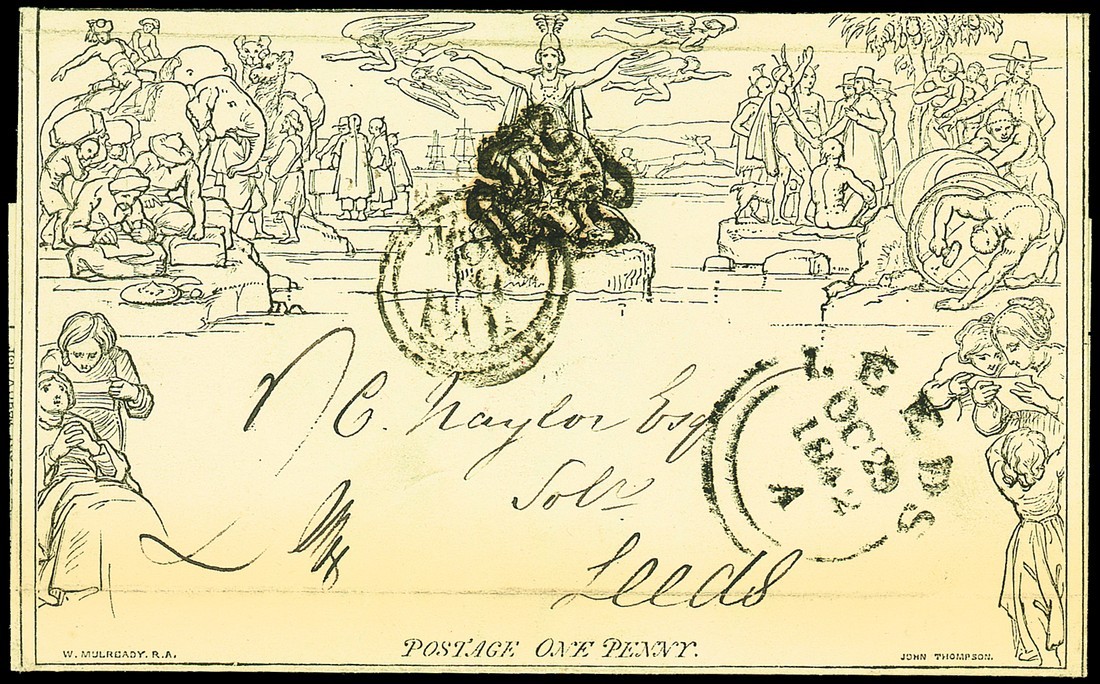 C. Naylor Esq
Solr
Leeds
LEEDS
OC 29
1842
A
POSTAGE ONE PENNY.
W. MULREADY. R.A.
JOHN THOMPSON.